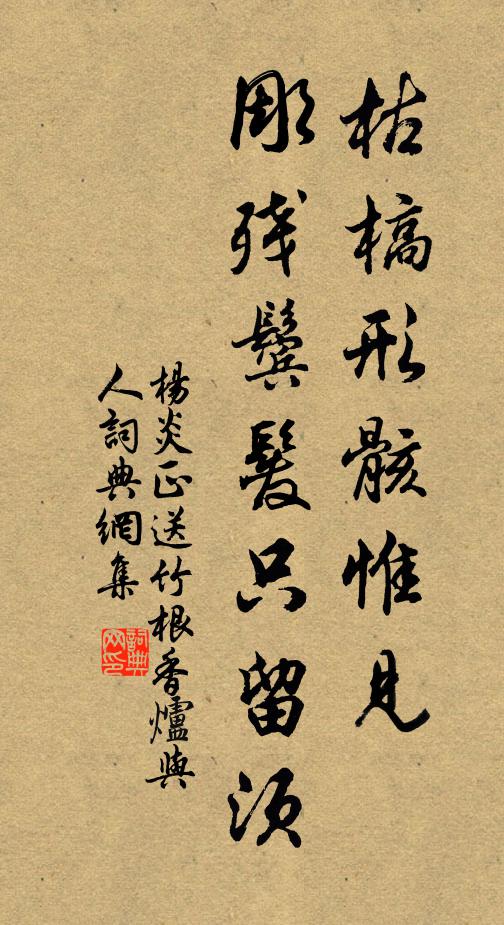 枯槁形骸惟見
彫残鬓髮只留須
楊炎正送竹根香爐與
人詞典網集
詞典网印